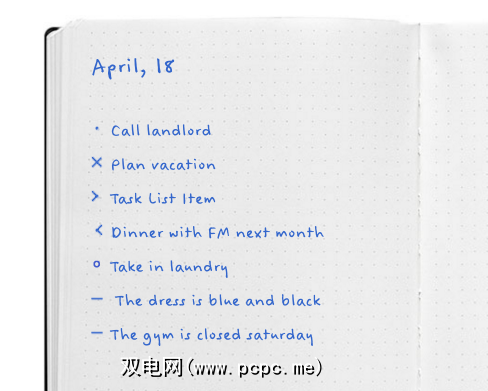 April, 18
· Call landlord
× Plan vacation
> Task List Item
< Dinner with FM next month
o Take in laundry
– The dress is blue and black
– The gym is closed saturday
双电网(www.pcpc.me)